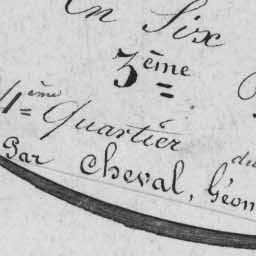 En Six
3ème
4ème Quartier
Par Cheval, Géom
du